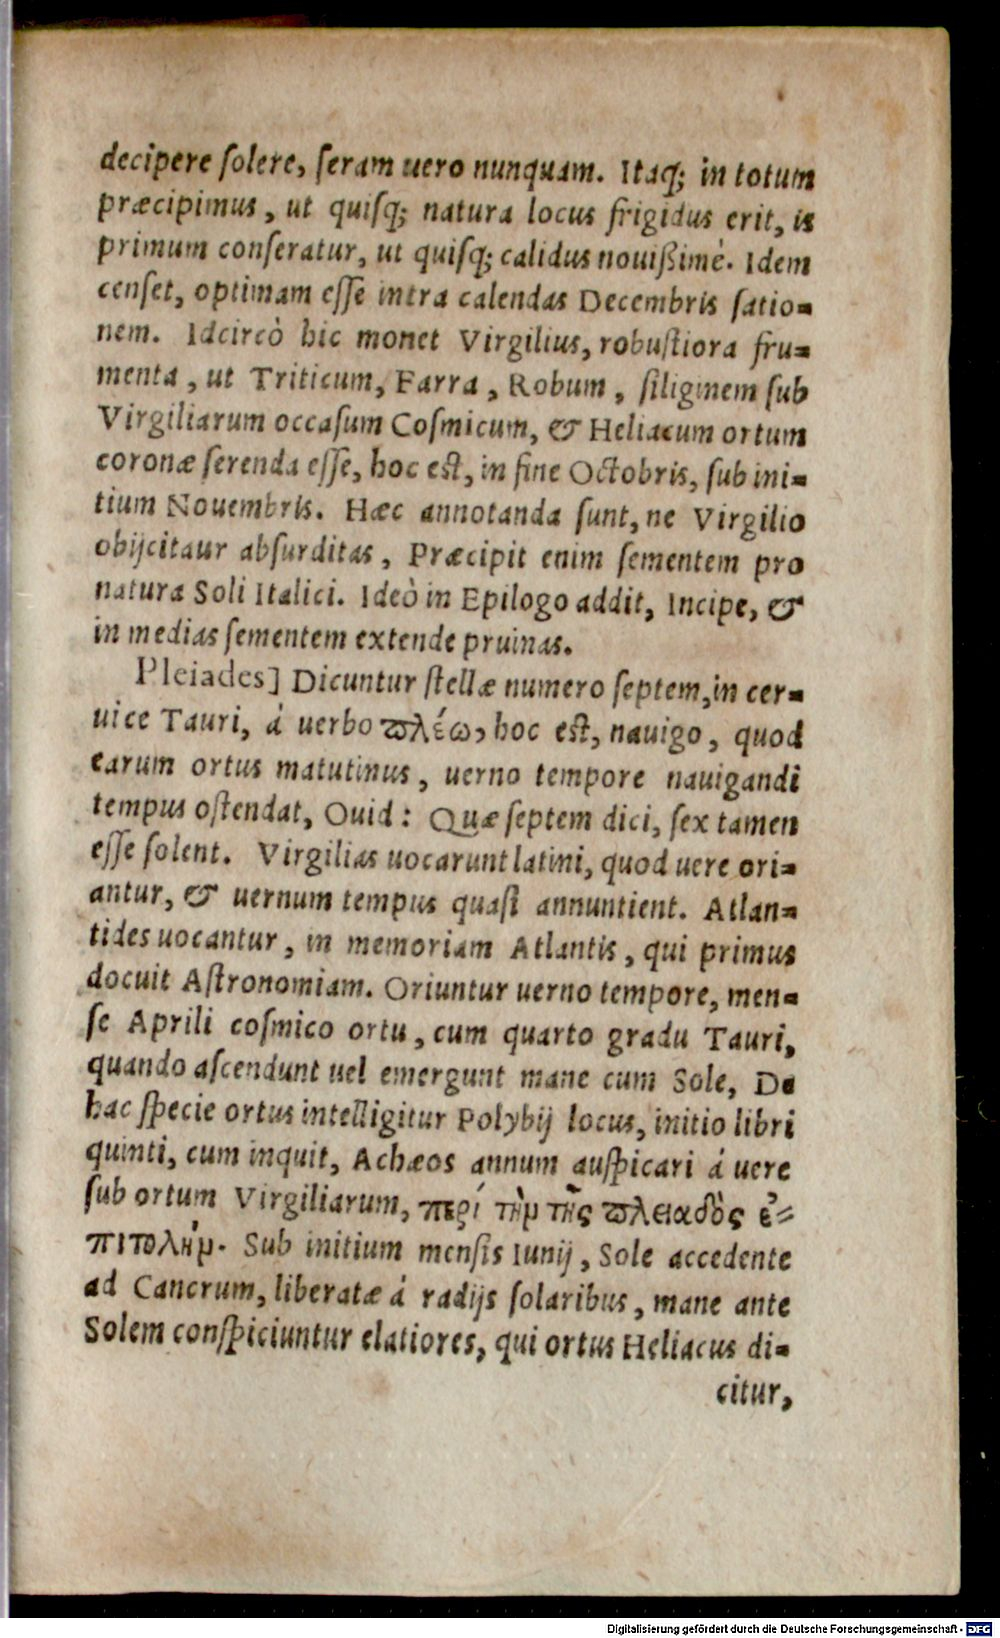 decipere ſolere, ſeram uero nunquam. Itaq; in totum
præcipimus, ut quiſq; natura locus frigidus erit, is
primum conſeratur, ut quiſq; calidus nouißimè. Idem
cenſet, optimam eſſe intra calendas Decembris ſatio-
nem. Idcircò hic monet Virgilius, robuſtiora fru-
menta, ut Triticum, Farra, Robum, ſiliginem ſub
Virgiliarum occaſum Coſmicum, & Heliacum ortum
coronæ ſerenda eſſe, hoc eſt, in fine Octobris, ſub ini-
tium Nouembris. Hæc annotanda ſunt, ne Virgilio
obijcitaur abſurditas, Præcipit enim ſementem pro
natura Soli Italici. Ideò in Epilogo addit, Incipe, &
in medias ſementem extende pruinas.
Pleiades] Dicuntur ſtellæ numero ſeptem, in cer-
uice Tauri, á uerbo ϖλέω, hoc eſt, nauigo, quod
earum ortus matutinus, uerno tempore nauigandi
tempus oſtendat, Ouid: Quæ ſeptem dici, ſex tamen
eſſe ſolent. Virgilias uocarunt latini, quod uere ori-
antur, & uernum tempus quaſi annuntient. Atlan-
tides uocantur, in memoriam Atlantis, qui primus
docuit Aſtronomiam. Oriuntur uerno tempore, men-
ſe Aprili coſmico ortu, cum quarto gradu Tauri,
quando aſcendunt uel emergunt mane cum Sole, De
hac ſpecie ortus intelligitur Polybij locus, initio libri
quinti, cum inquit, Achæos annum auſpicari á uere
ſub ortum Virgiliarum, περί τὴν τῆς ϖλειαδὸς ἐ-
πιτολήν. Sub initium menſis Iunij, Sole accedente
ad Cancrum, liberatæ á radijs ſolaribus, mane ante
Solem conſpiciuntur elatiores, qui ortus Heliacus di-
citur,
Digitalisierung gefördert durch die Deutsche Forschungsgemeinschaft - DFG